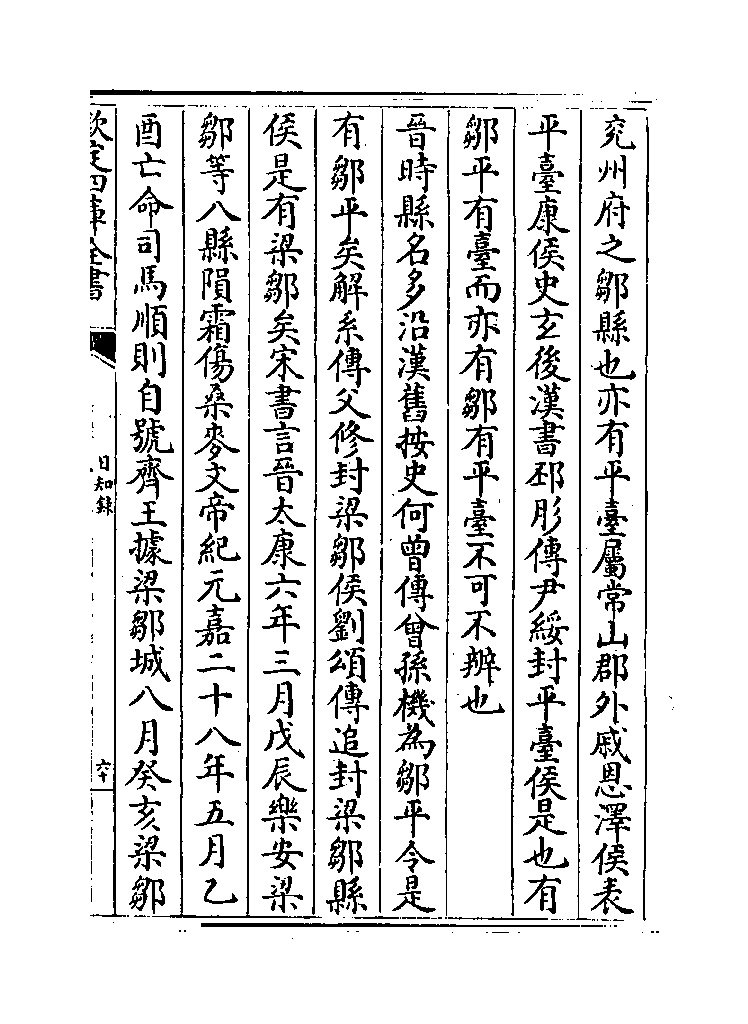 兖州府之鄒縣也亦有平臺屬常山郡外戚恩澤侯表
平臺康侯史玄後漢書邳彤傳尹綏封平臺侯是也有
鄒平有臺而亦有鄒有平臺不可不辨也
晉時縣名多沿漢舊按史何曾傳曾孫機為鄒平令是
有鄒平矣解系傳父修封梁鄒侯劉頌傳追封梁鄒縣
侯是有梁鄒矣宋書言晉太康六年三月戊辰樂安梁
鄒等八縣隕霜傷桑麥文帝紀元嘉二十八年五月乙
酉亡命司馬順則自號齊王據梁鄒城八月癸亥梁鄒
欽定四庫全書
日知錄
六十